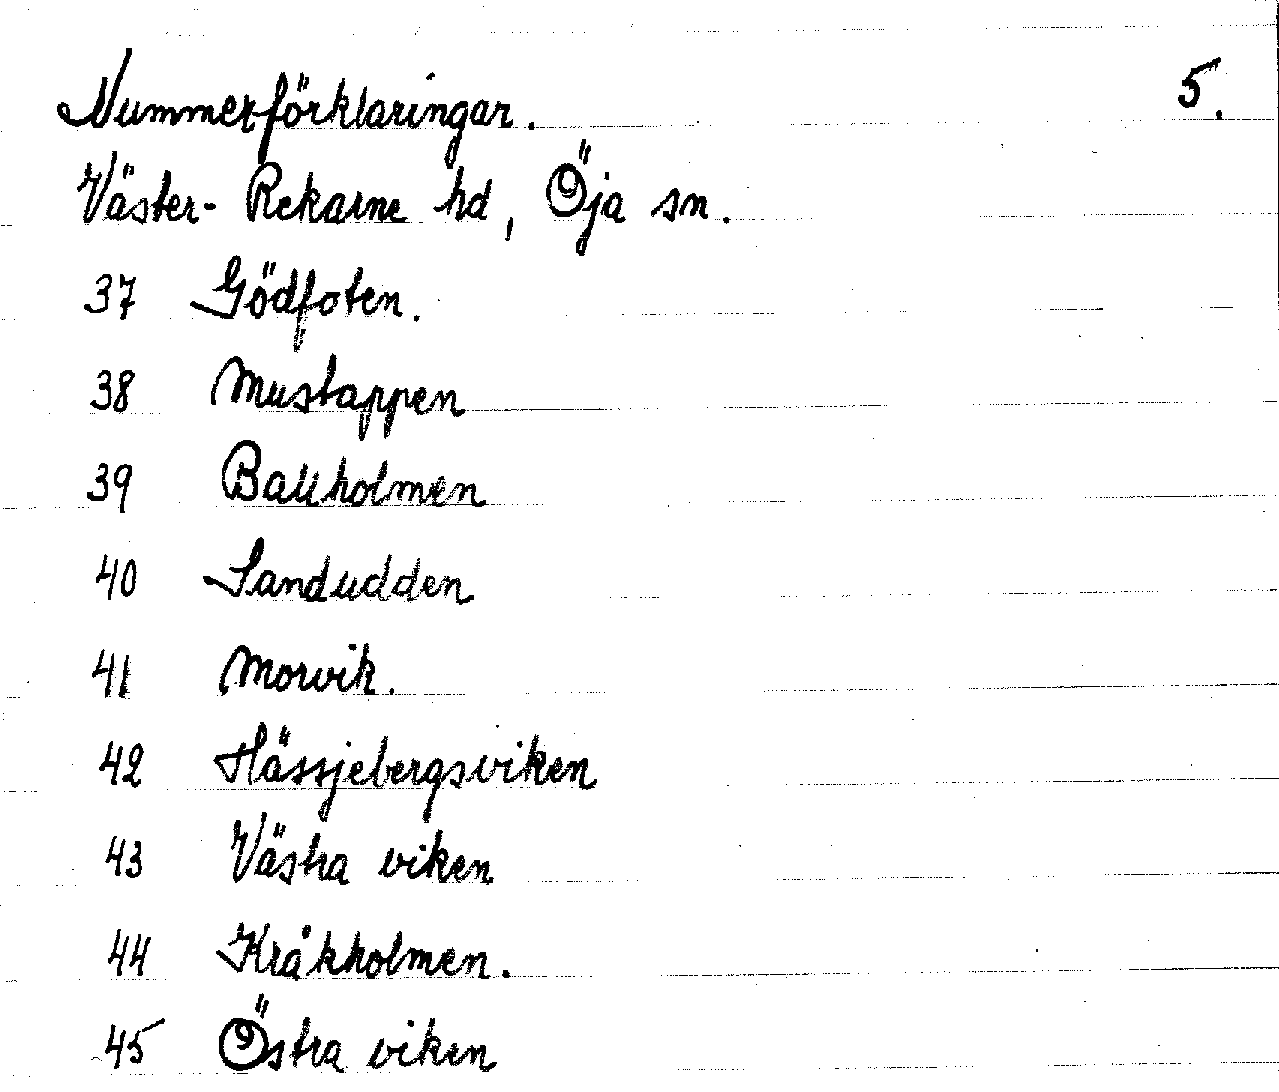 Nummerförklaringar. 5.
Väster-Rekarne hd, Öja sn.
37 Gödfoten.
38 Mustappen
39 Ballholmen
40 Sandudden
41 Morvik.
42 Hässjebergsviken
43 Västra viken
44 Kråkholmen.
45 Östra viken